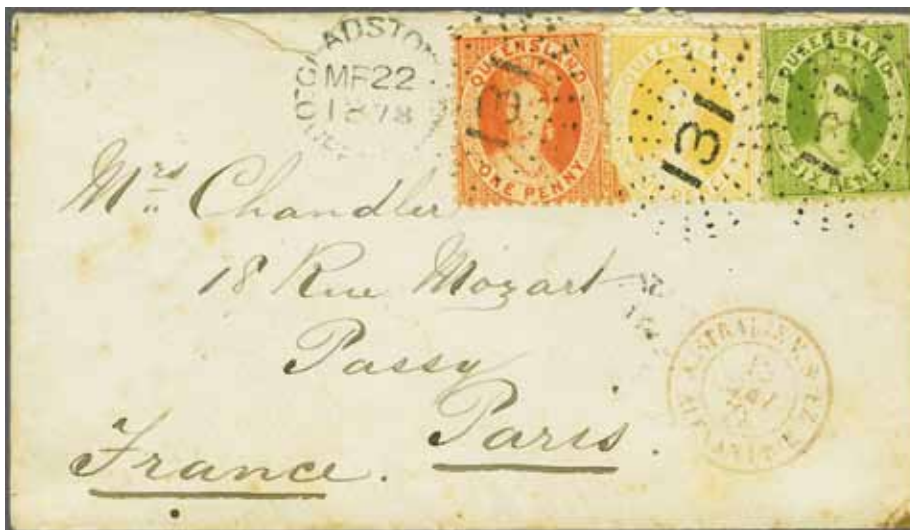 MR 22
1878
QUEENSLAND
ONE PENNY
131
QUEENSLAND
131
QUEENSLAND
SIX PENCE
131
Mrs. Chandler
18 Rue Mozart
Passy
Paris.
France.